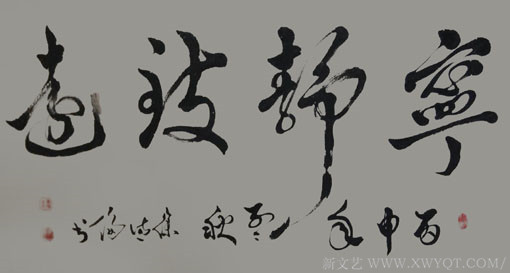 寧靜致遠
丙申年
秋
書
新文艺 WWW.XWYQT.COM